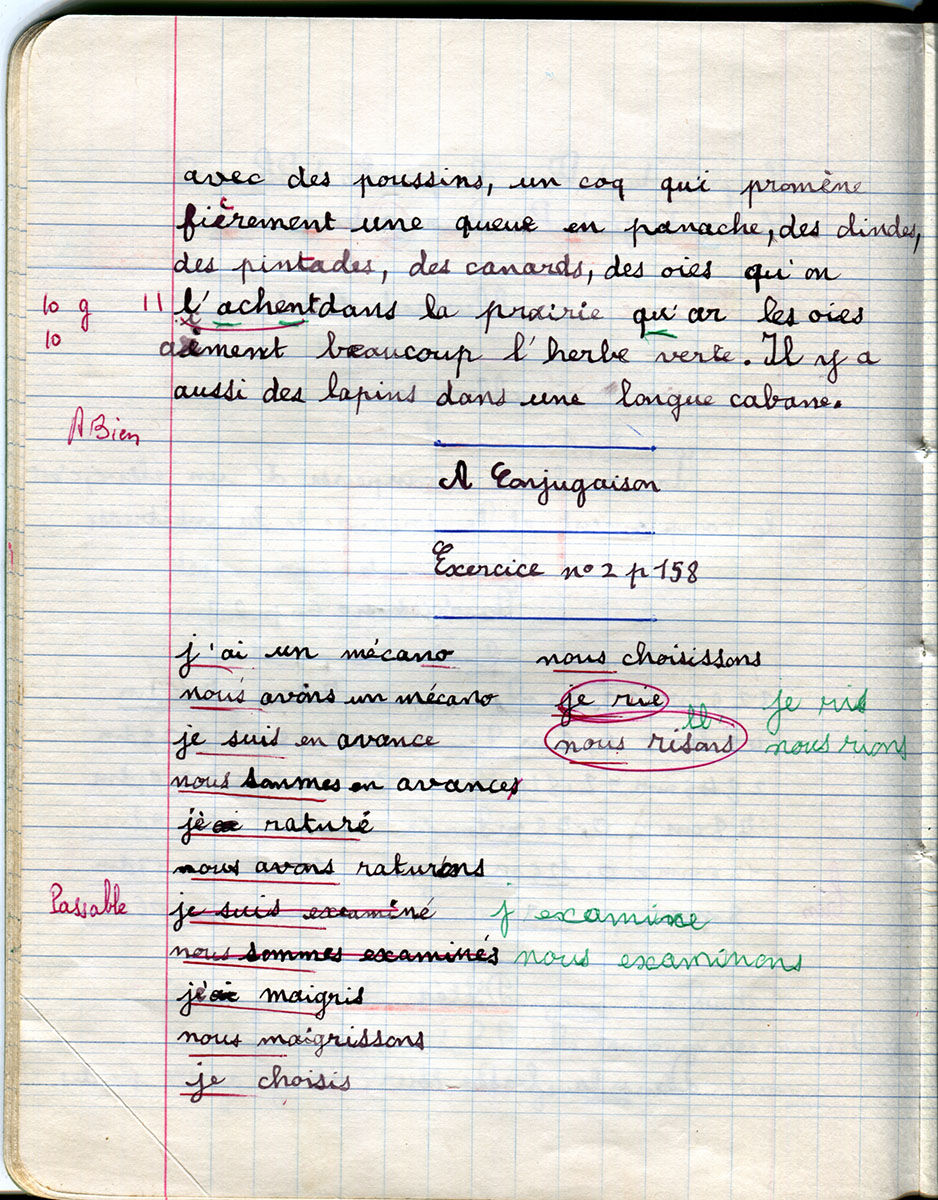 avec des poussins, un coq qui promène
fièrement une queue en panache, des dindes,
des pintades, des canards, des oies qu'on
10 g 11 l'achent dans la prairie qu'ar les oies
10 aiment beaucoup l'herbe verte. Il y a
aussi des lapins dans une longue cabane.
A Bien
A Conjugaison
Exercice n° 2 p 158
j'ai un mécano nous choisissons
nous avons un mécano je rie je ris
je suis en avance nous risons ll nous rions
nous sommes en avances
je raturé
nous avons raturons
Passable je suis examiné j examine
nous sommes examinés nous examinons
je maigris
nous maigrissons
je choisis